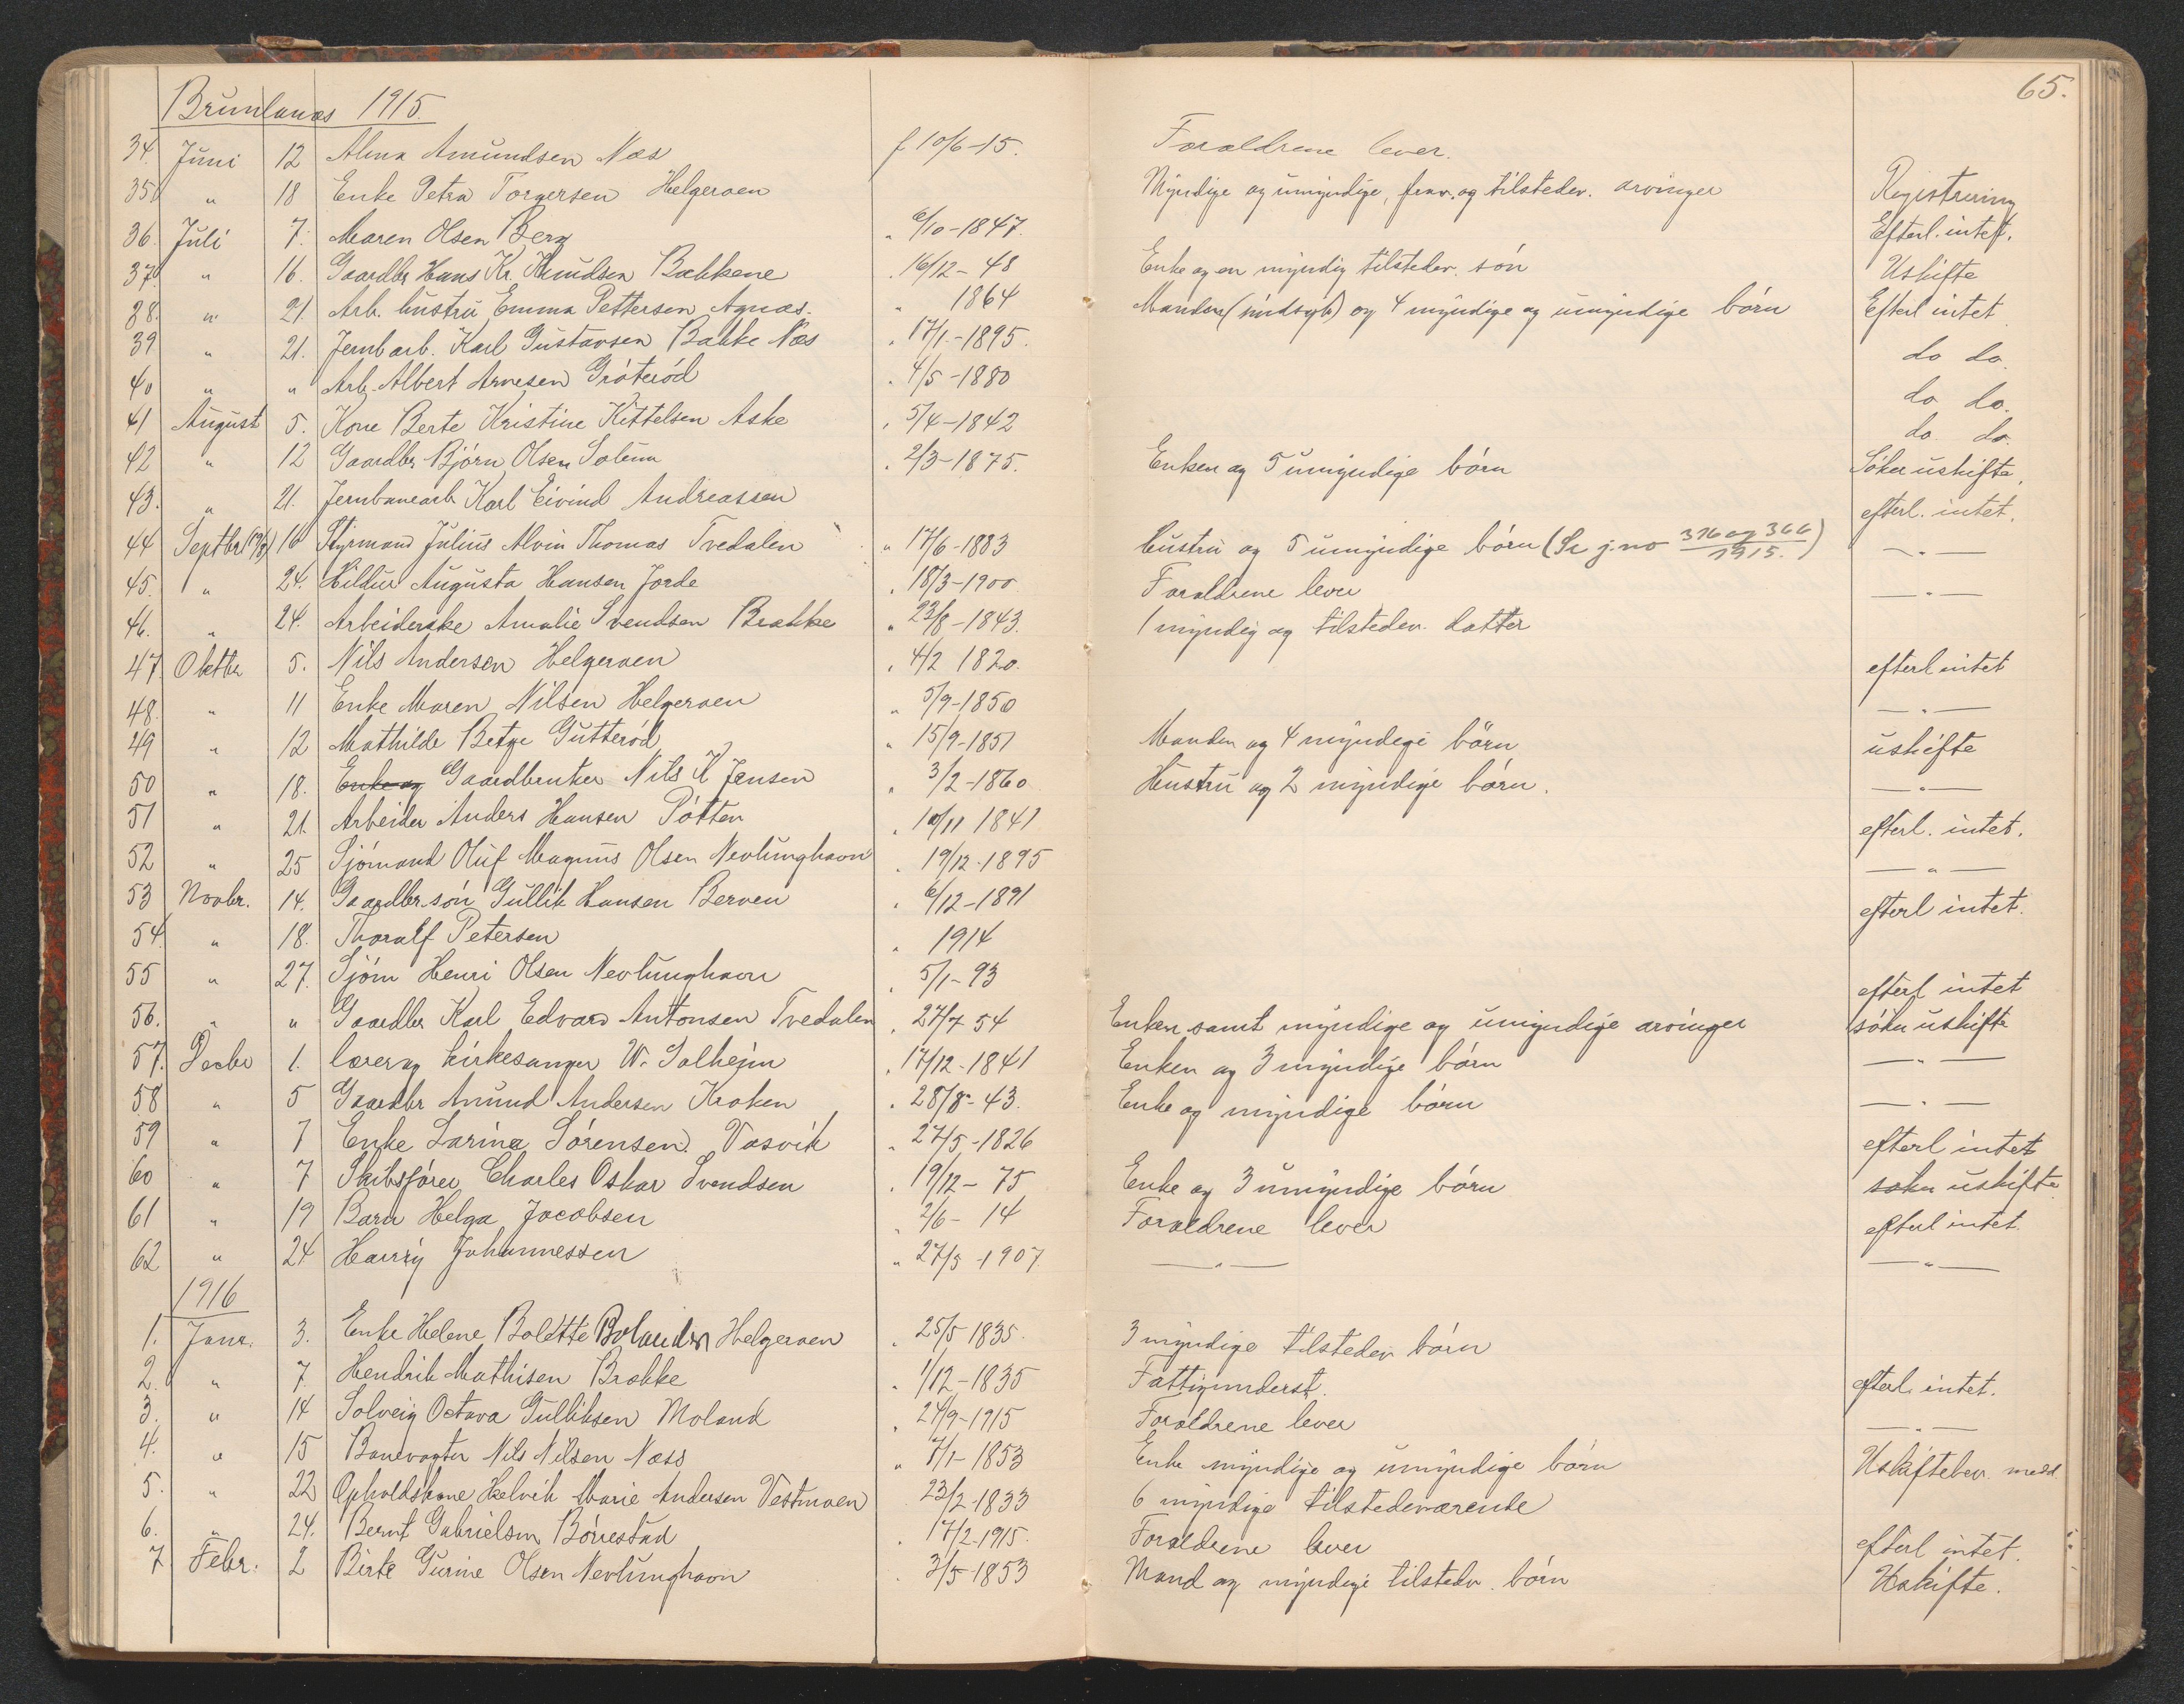 65.
Brunlanæs 1915
34. Juni 12 Alma Amundsen Næs f 10/6-15. Forældrene lever.
35. " 18 Enke Petra Torgersen Helgeroen Myndige og umyndige, frav. og tilstedev. arvinger Registrering
36. Juli 7. Maren Olsen Berg " 6/10-1847. Efterl. intet.
37. " 16. Gaardbr Hans Kr. Knudsen Bakkene " 16/12-48 Enke og en myndig tilstedev. søn Uskifte
38. " 21. Arb. hustru Emma Pettersen Agnæs. " 1864 Manden (sindsyk) og 4 myndige og umyndige børn Efterl intet
39 " 21. Jernb arb. Karl Gustavsen Bakke Næs " 17/1-1895. do do.
40 " " Arb. Albert Arnesen Grøterød " 4/5-1880 do do.
41 August 5. Kone Berte Kristine Kittelsen Aske " 5/4-1842 do. do.
42 " 12 Gaardbr Bjørn Olsen Solum " 2/3-1875. Enken og 5 umyndige børn Søker uskifte,
43. " 21. Jernbanearb Karl Eivind Andreassen efterl. intet.
44 Septbr 16 Styrmand Julius Alvin Thomas Tvedalen " 17/6-1883 Hustru og 5 umyndige børn (Se j.no 316 og 366/1915.) — " —
45. " 24. Hildur Augusta Hansen Jorde " 18/3-1900 Forældrene lever — " —
46. " 24. Arbeiderske Amalie Svendsen Brække " 23/8-1843. 1 myndig og tilstedev. datter
47 Oktbr 5. Nils Andersen Helgeroen " 4/2 1820. efterl intet
48. " 11 Enke Maren Nilsen Helgeroen " 5/9-1850 — " —
49 " 12 Mathilde Betge Gutterød " 15/9-1851 Manden og 4 myndige børn uskifte
50 " 18. Enke og Gaardbruker Nils K Jensen " 3/2-1860 Hustru og 2 myndige børn. — " —
51 " 21. Arbeider Anders Hansen Pøtten " 10/11 1841 efterl. intet.
52 " 25 Sjømand Oluf Magnus Olsen Nevlunghavn " 19/12-1895 — " —
53 Novbr. 14. Gaardbr.søn Gullik Hansen Berven " 6/12-1891 efterl intet.
54 " 18. Thoralf Petersen " 1914
55 " 27. Sjøm Henri Olsen Nevlunghavn " 5/1-93 efterl intet
56. " " Gaardbr Karl Edvard Antonsen Tvedalen " 27/7 54 Enken samt myndige og umyndige arvinger søker uskifte
57. Decbr 1. lærer og kirkesanger W. Solheim " 17/12-1841 Enken og 3 myndige børn — " —
58 " 5 Gaardbr Amund Andersen Kroken " 28/8-43. Enke og myndige børn — " —
59 " 7 Enke Larine Sørensen Vasvik " 27/5-1826 efterl intet
60 " 7 Skibsfører Charles Oskar Svendsen " 19/12-75 Enke og 3 umyndige børn søker uskifte
61 " 19 Barn Helga Jacobsen " 2/6-14 Forældrene lever efterl intet.
62 " 24 Harry Johannessen " 27/5-1907. — " — — " —
1916
1. Janr. 3. Enke Helene Bolette Bolander Helgeroen " 25/5 1835. 3 myndige tilstedev børn
2. " 7 Hendrik Mathisen Brække " 1/12-1835 Fattigunderst. efterl. intet.
3. " 14 Solveig Octava Gulliksen Moland " 24/9-1915 Forældrene lever — " —
4. " 15 Banevogter Nils Nilsen Næss " 7/1-1853 Enke myndige og umyndige børn Uskiftebev. medd.
5. " 22 Opholdskone Helvik Marie Andersen Vestmoen 23/2-1833 6 myndige tilstedeværende
6. " 24. Bernt Gabrielsen Børrestad " 17/2-1915. Forældrene lever efterl intet.
7 Febr. 2 Birte Gurine Olsen Nevlunghavn " 3/5-1853 Mand og myndige tilstedv. børn Uskifte.